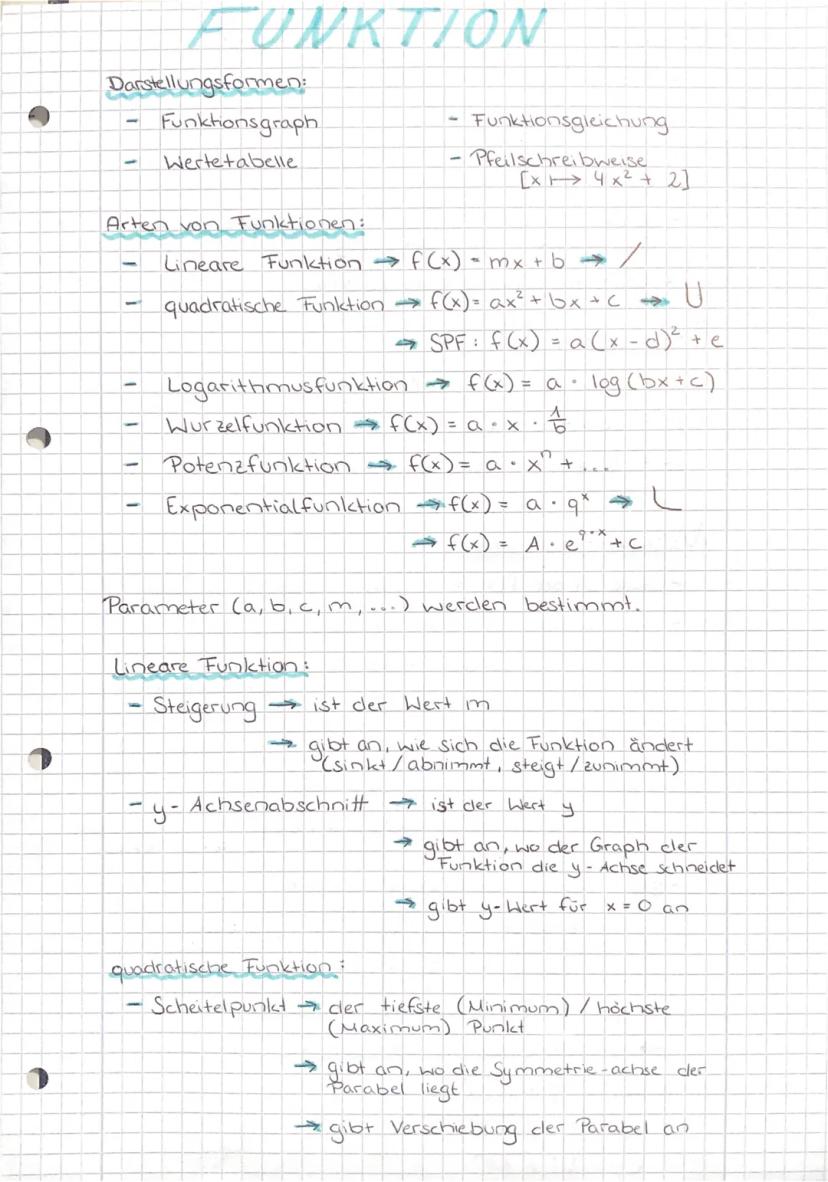 FUNKTION
Darstellungsformen:
- Funktionsgraph
- Funktionsgleichung
- Wertetabelle
- Pfeilschreibweise
[x ↦ 4x² + 2]
Arten von Funktionen:
- Lineare Funktion → f(x) = mx + b → /
- quadratische Funktion → f(x) = ax² + bx + c → U
→ SPF: f(x) = a(x - d)² + e
- Logarithmusfunktion → f(x) = a · log(bx+c)
- Wurzelfunktion → f(x) = a · x · 1/b
- Potenzfunktion → f(x) = a · xⁿ + ...
- Exponentialfunktion → f(x) = a · qˣ → L
→ f(x) = A · e^(q·x) + c
Parameter (a, b, c, m, ...) werden bestimmt.
Lineare Funktion:
- Steigerung → ist der Wert m
→ gibt an, wie sich die Funktion ändert
(sinkt / abnimmt, steigt / zunimmt)
- y-Achsenabschnitt → ist der Wert y
→ gibt an, wo der Graph der
Funktion die y-Achse schneidet
→ gibt y-Wert für x = 0 an
quadratische Funktion:
- Scheitelpunkt → der tiefste (Minimum) / höchste
(Maximum) Punkt
→ gibt an, wo die Symmetrie-achse der
Parabel liegt
→ gibt Verschiebung der Parabel an